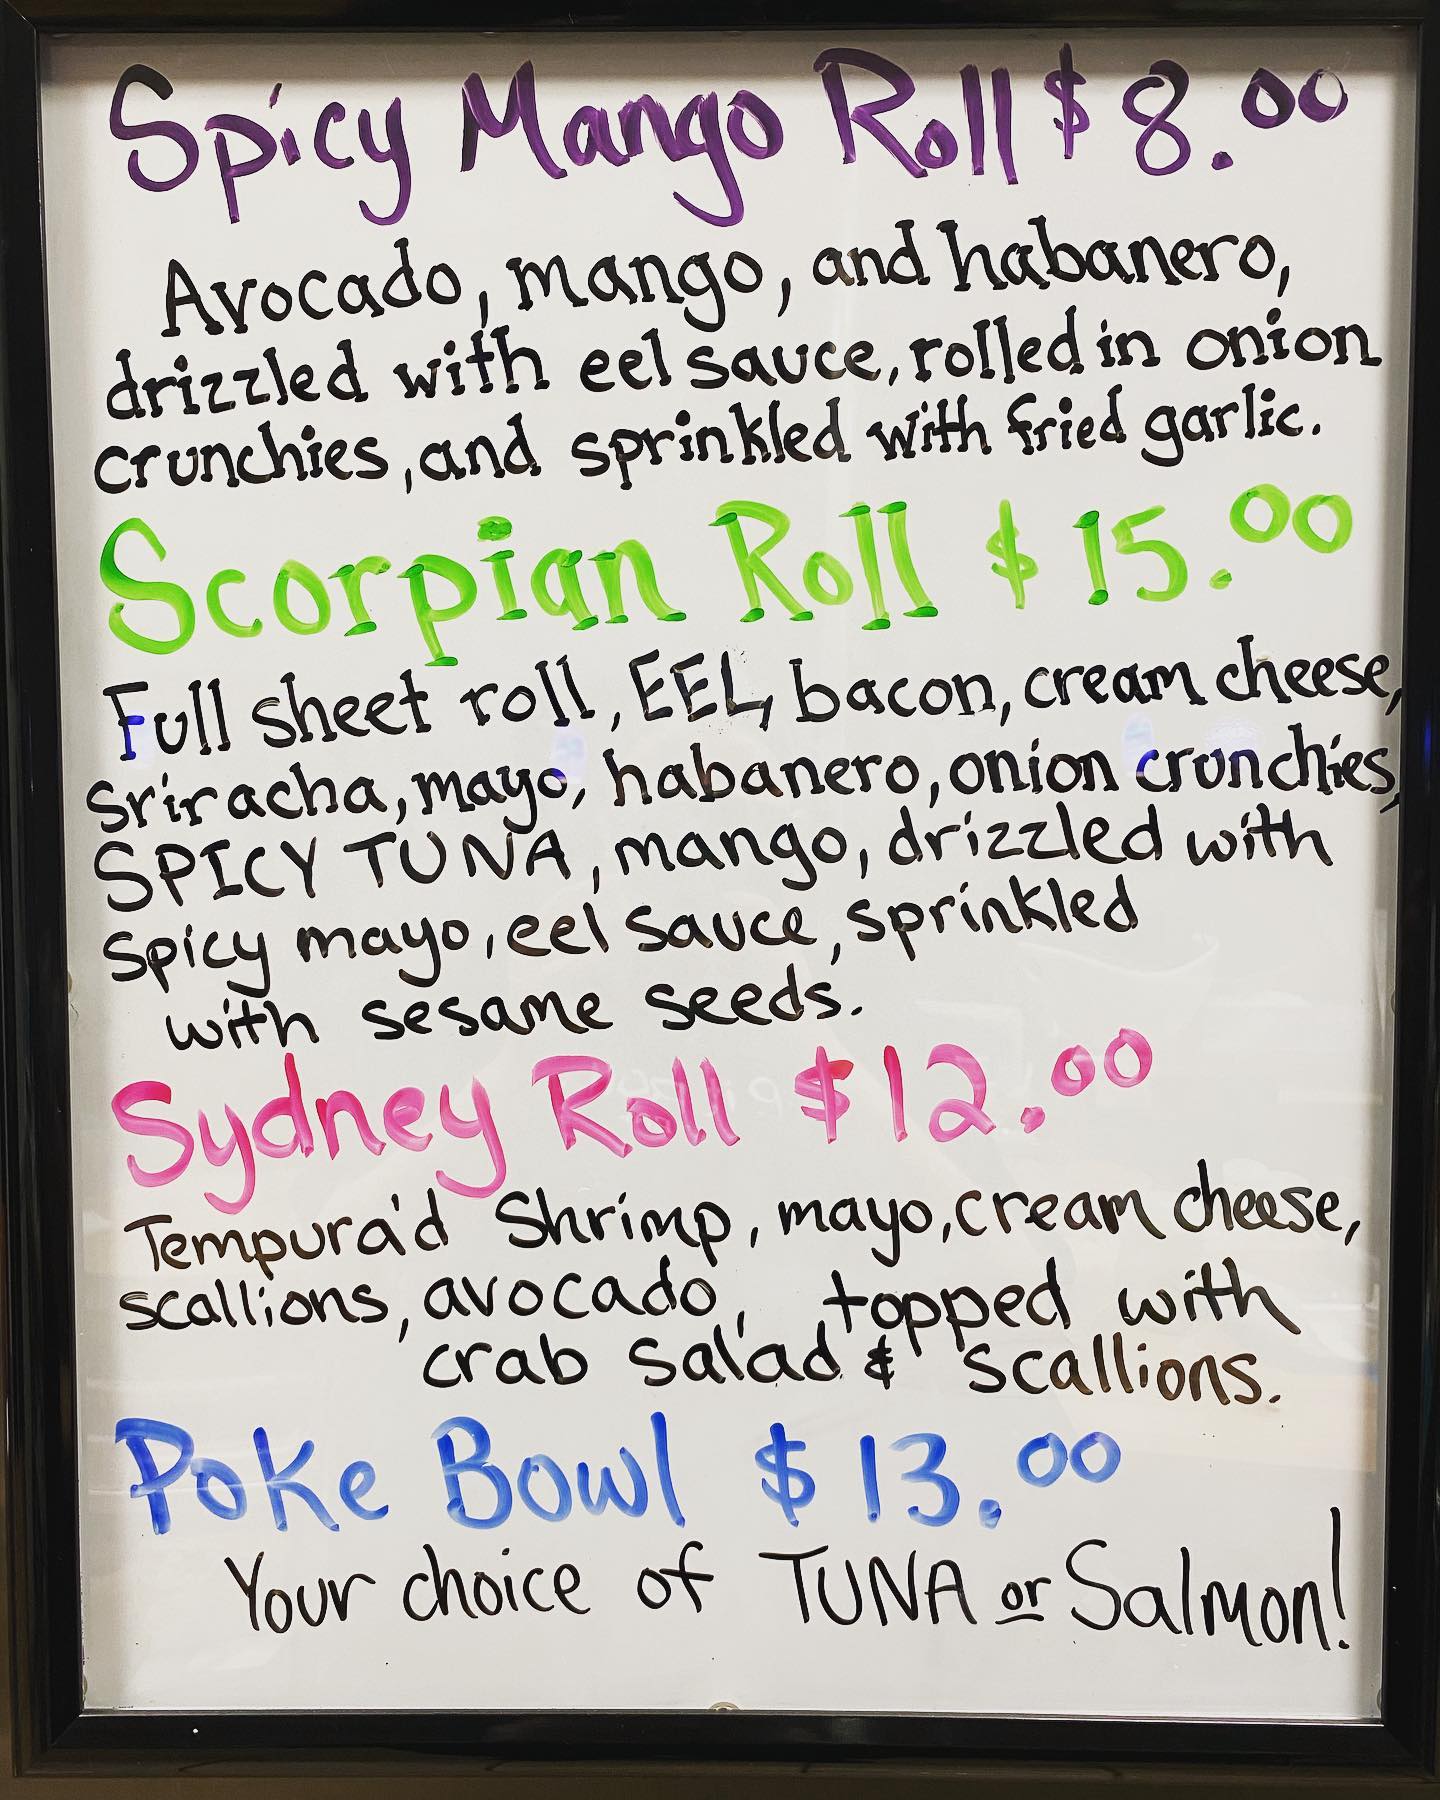 Spicy Mango Roll $8.00
Avocado, mango, and habanero,
drizzled with eel sauce, rolled in onion
crunchies, and sprinkled with fried garlic.
Scorpian Roll $15.00
Full sheet roll, EEL, bacon, cream cheese,
sriracha, mayo, habanero, onion crunchies,
SPICY TUNA, mango, drizzled with
spicy mayo, eel sauce, sprinkled
with sesame seeds.
Sydney Roll $12.00
Tempura'd Shrimp, mayo, cream cheese,
scallions, avocado, topped with
crab salad & scallions.
Poke Bowl $13.00
Your choice of TUNA or Salmon!